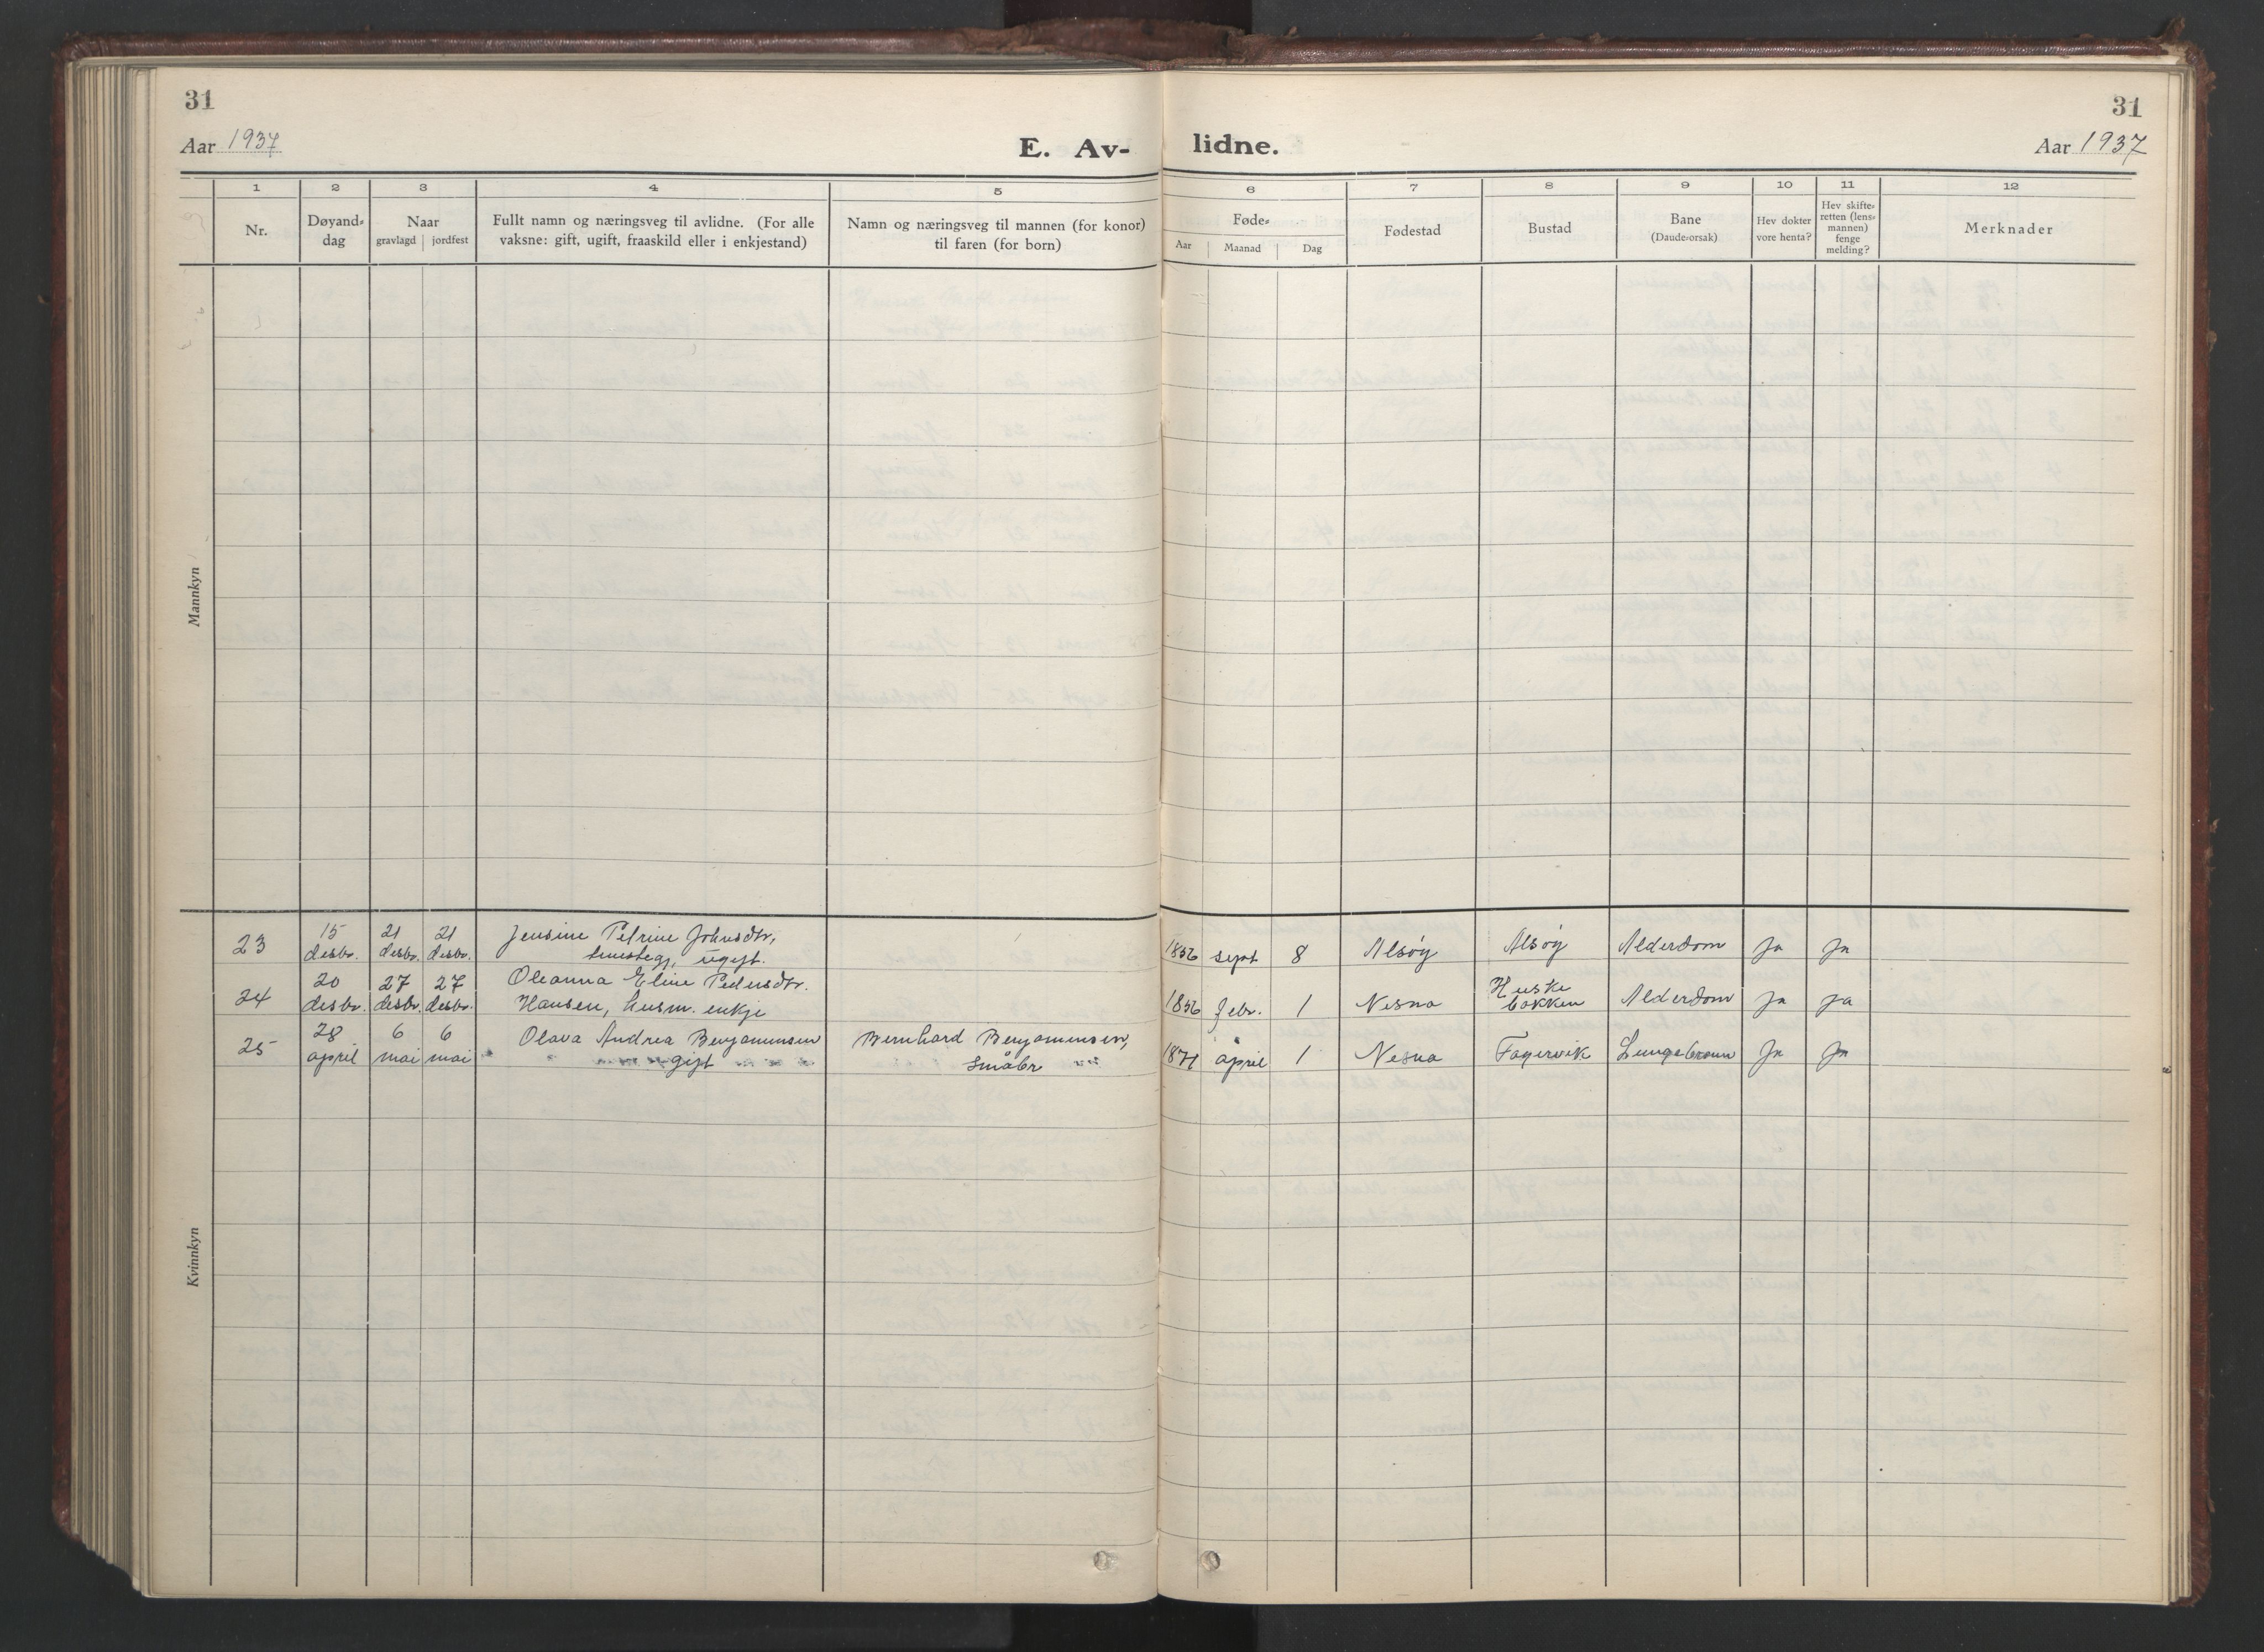 31
31
Aar 1937
E. Av-
lidne.
Aar 1937
1 2 3 4 5 6 7 8 9 10 11 12
Nr.
Døyand-
dag
Naar
gravlagd jordfest
Fullt namn og næringsveg til avlidne. (For alle
vaksne: gift, ugift, fraaskild eller i enkjestand)
Namn og næringsveg til mannen (for konor)
til faren (for born)
Føde-
Aar Maanad Dag
Fødestad
Bustad
Bane
(Daude-orsak)
Hev dokter
vore henta?
Hev skifte-
retten (lens-
mannen)
fenge
melding?
Merknader
Mannkyn
Kvinnkyn
23 15 desbr. 21 desbr. 21 desbr. Jensine Petrine Johnsdtr,
ugift. 1856 sept 8 Alsøy Alsøy Alderdom Ja Ja
24 20 desbr. 27 desbr. 27 desbr. Oleanna Eline Pedersdtr.
Hansen, husm. enkje 1856 febr. 1 Nesna Huske
bakken Alderdom Ja Ja
25 28 april 6 mai 6 mai Olava Andrea Benjaminsen
gift Bernhard Benjaminsen,
småbr 1871 april 1 Nesna Fagervik Lungebetenn Ja Ja